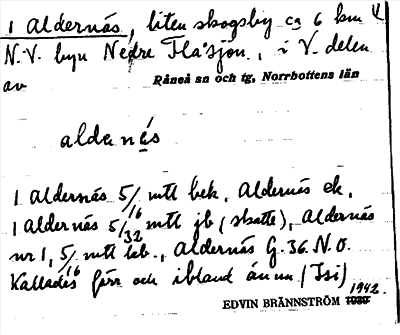 1 Aldernäs, liten skogsby ca 6 km
N.V. byn Nedre Flåsjön, i V. delen
av Råneå sn och tg, Norrbottens län
aldernäs
1 Aldernäs 5/16 mtl bek. Aldernäs ek.
1 Aldernäs 5/32 mtl jb (skatte), Aldernäs
nr 1, 5/16 mtl leb., Aldernäs G. 36. N.O.
Kallades förr och ibland ännu (Tsi)
EDVIN BRÄNNSTRÖM 1939 1942.